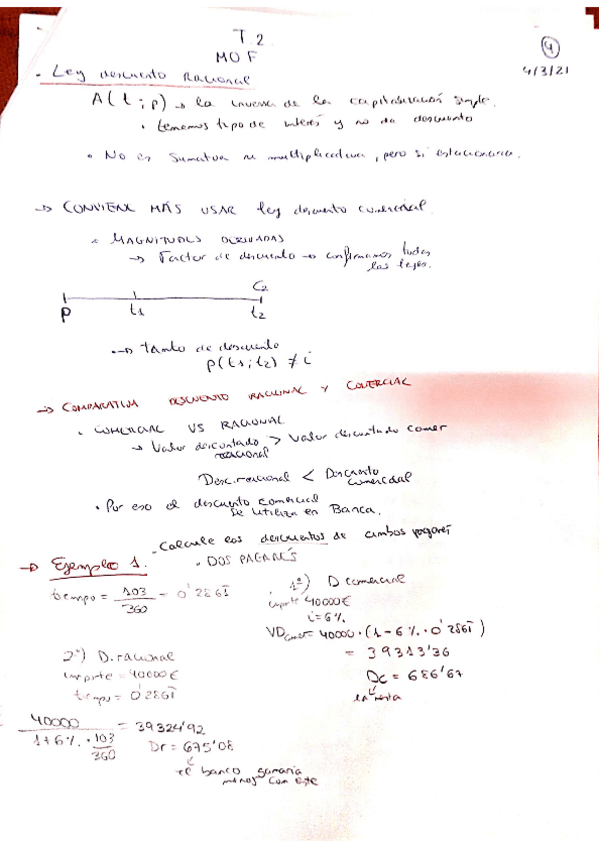 T 2
MOF
④
4/3/21
• Ley descuento Racional
A(t;p) → la inversa de la capitalización simple.
• tenemos tipo de interés y no de descuento
• No es sumativa ni multiplicativa, pero sí estacionaria.
→ CONVIENE MÁS USAR ley descuento comercial.
• MAGNITUDES DERIVADAS
→ Factor de descuento → confirmamos todas
las leyes.
C2
P t1 t2
→ tanto de descuento
p(t1;t2) ≠ i
→ COMPARATIVA DESCUENTO RACIONAL Y COMERCIAL
• COMERCIAL VS RACIONAL
→ Valor descontado > Valor descontado comer
racional
Desc. racional < Descuento
comercial
• Por eso el descuento comercial
se utiliza en Banca.
- Calcule los descuentos de ambos pagarés
→ Ejemplo 1.
• DOS PAGARÉS
tiempo = 103/360 = 0'2861
1º) D comercial
importe 40000€
i = 6%
VDcomer = 40000 · (1 - 6% · 0'2861)
= 39313'36
Dc = 686'67
2º) D. racional
importe = 40000€
tiempo = 0'2861
40000 / (1 + 6% · 103/360) = 39324'92
Dr = 675'08
el banco ganaria
menos con este